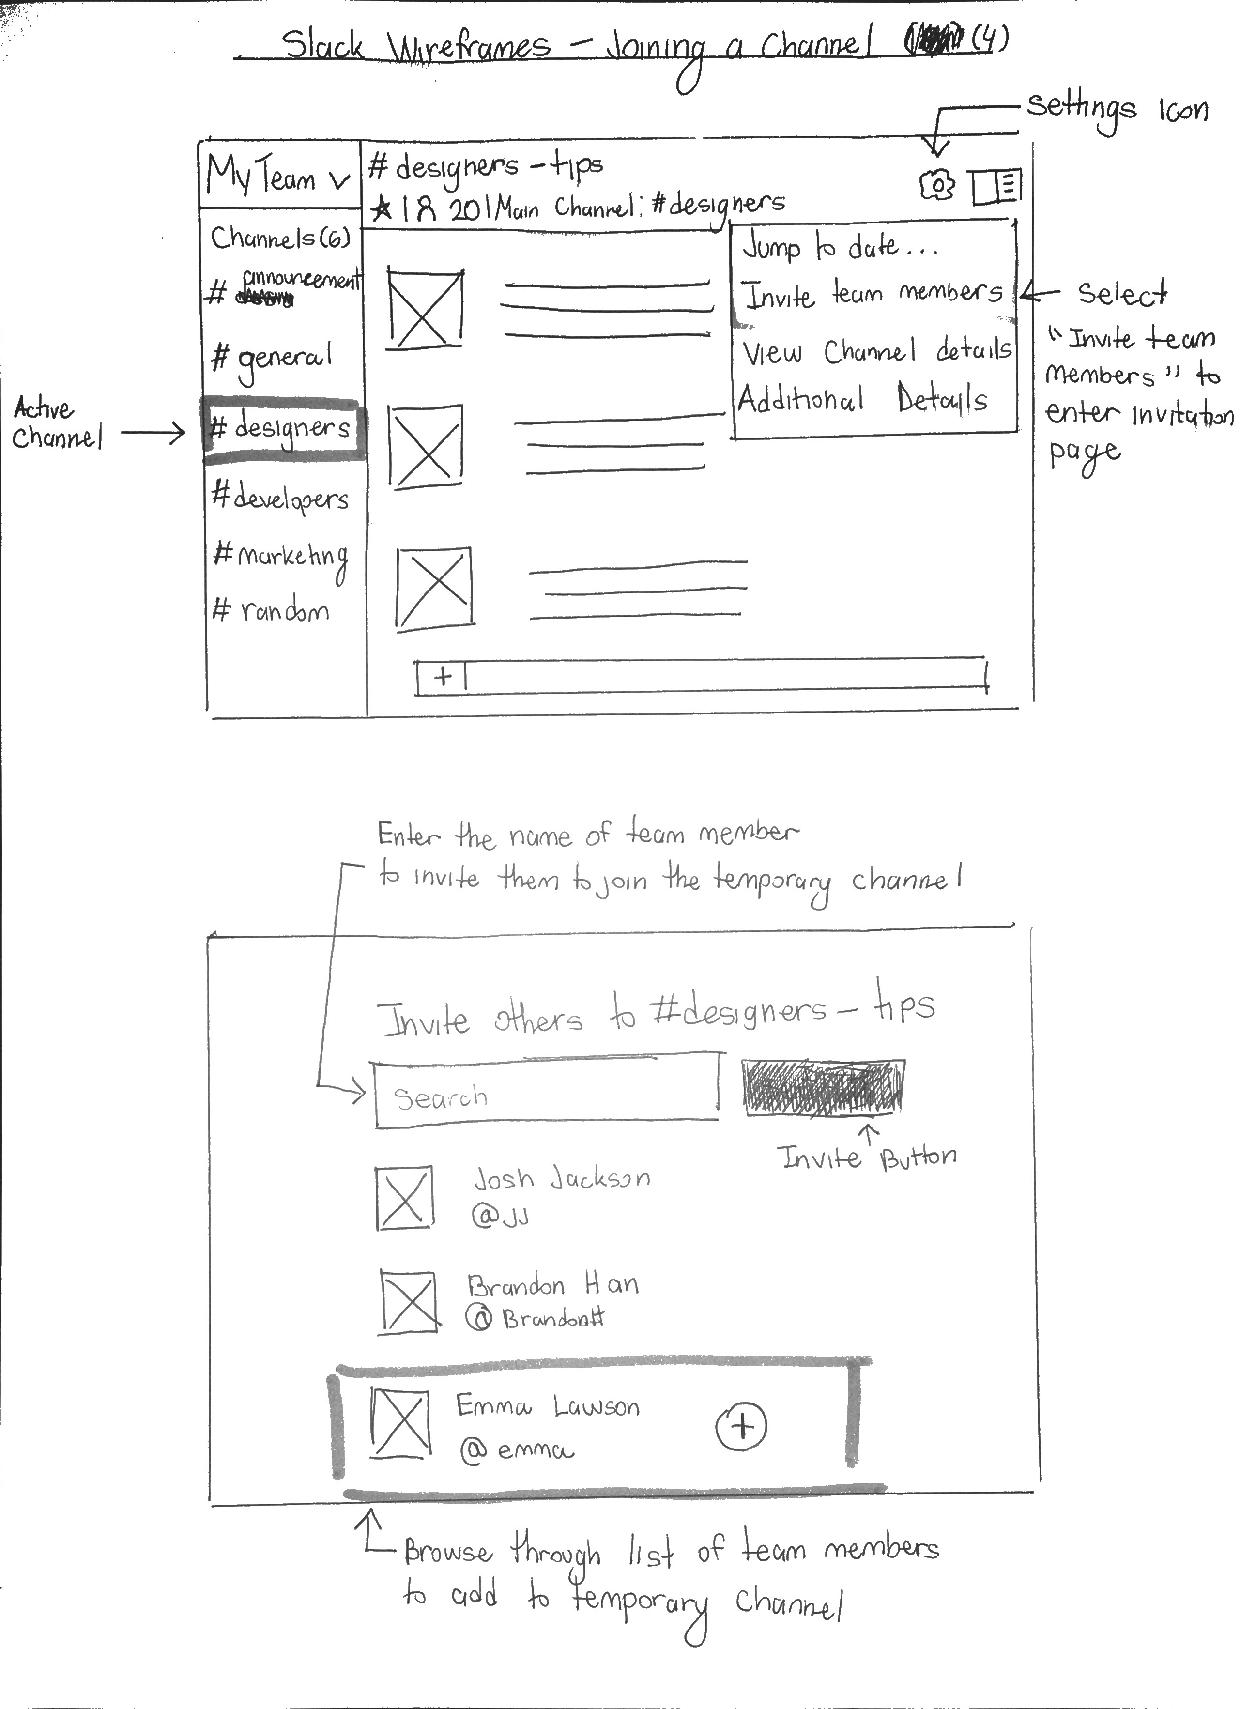 Slack Wireframes - Joining a Channel (4)
Settings Icon
My Team
# designers - tips
20 | Main Channel: #designers
Channels (6)
# announcement
# general
# designers
# developers
# marketing
# random
Jump to date...
Invite team members
View Channel details
Additional Details
Select
"Invite team
members" to
enter invitation
page
Active
Channel
+
Enter the name of team member
to invite them to join the temporary channel
Invite others to #designers - tips
Search
Invite Button
Josh Jackson
@JJ
Brandon Han
@BrandonH
Emma Lawson
@emma
+
Browse through list of team members
to add to temporary channel